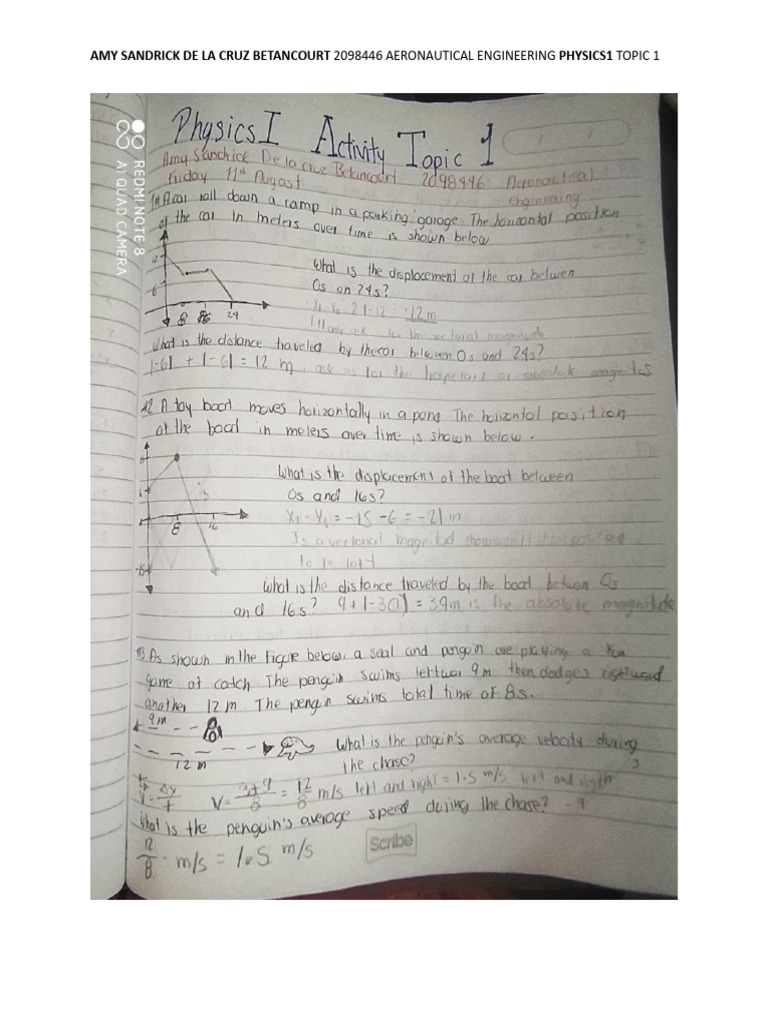 AMY SANDRICK DE LA CRUZ BETANCOURT 2098446 AERONAUTICAL ENGINEERING PHYSICS1 TOPIC 1
Physics I Activity Topic 1
Amy Sandrick De la cruz Betancourt 2098446 Aeronautical
Friday 11st August engineering
A car roll down a ramp in a parking garage. The horizontal position
of the car in meters over time is shown below
What is the displacement of the car between
0s an 24s?
24-12 = -12m
8 16 24
What is the distance traveled by the car between 0s and 24s?
|-6| + |-6| = 12 m,
#2 A toy boat moves horizontally in a pond The horizontal position
of the boat in meters over time is shown below.
What is the displacement of the boat between
0s and 16s?
= -15 -6 = -21 m
8 16
-15
What is the distance traveled by the boat between 0s
and 16s? 9 + |-30| = 39m is the absolute magnitude
#3 As shown in the Figure below, a seal and penguin are playing a fun
game of catch The penguin swims leftwar 9m then dodges rightward
another 12 m The pengin swims total time of 8s.
9m
12 m
What is the penguin's average velocity during
the chase?
V = Δx/t
V = = 12/8 m/s left and right = 1.5 m/s
What is the penguin's average speed during the chase?
12/8 m/s = 1.5 m/s
Scribe
REDMI NOTE 8
AI QUAD CAMERA